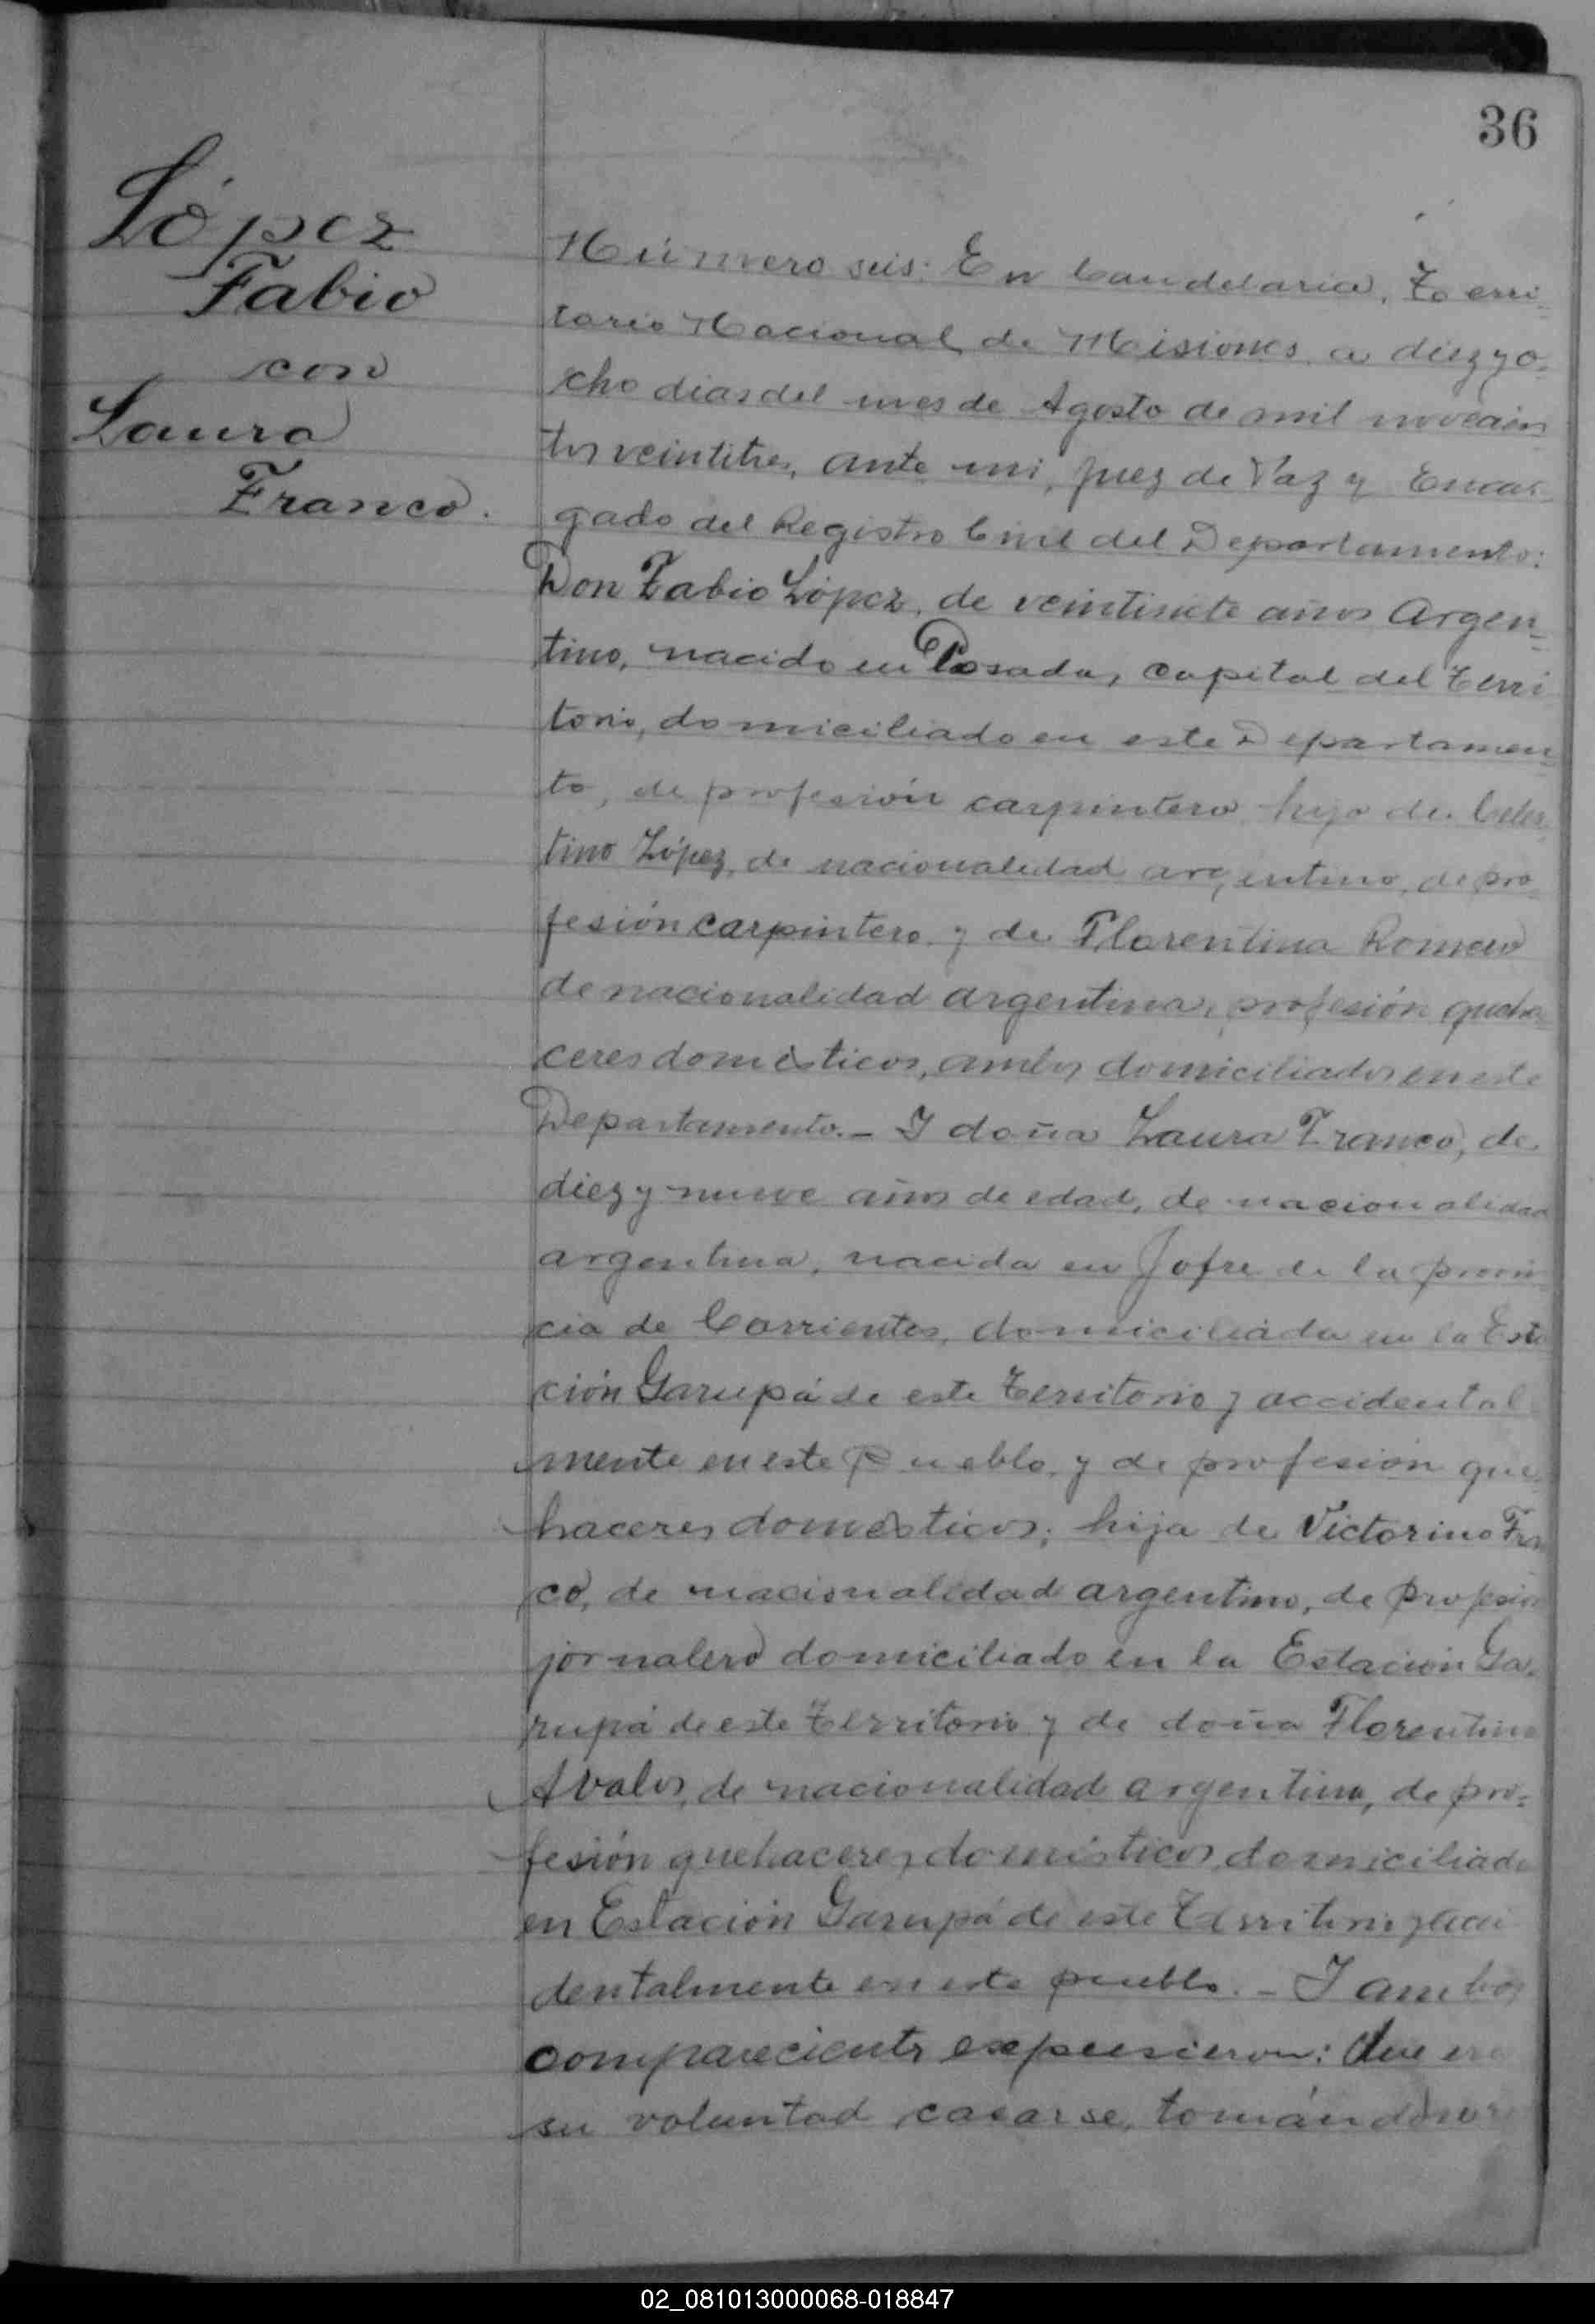 36
López
Fabio
con
Laura
Franco.
Número seis: En Candelaria, Terri-
torio Nacional de Misiones a diez y o-
cho dias del mes de Agosto de mil novecien
tos veintitres, ante mi, Juez de Paz y Encar-
gado del Registro Civil del Departamento:
Don Fabio López, de veintisiete años Argen-
tino, nacido en Posadas, capital del Terri
torio, domiciliado en este Departamen-
to, de profesión carpintero hijo de Celes-
tino López, de nacionalidad argentino, de pro-
fesión carpintero y de Florentina Romero
de nacionalidad argentina, profesión queha-
ceres domésticos, ambos domiciliados en este
Departamento.- I doña Laura Franco, de
diez y nueve años de edad, de nacionalidad
argentina, nacida en Jofre de la provin-
cia de Corrientes, domiciliada en la Esta
ción Garupá de este Territorio y accidental
mente en este Pueblo y de profesión que-
haceres domésticos; hija de Victorino Fran
co, de nacionalidad argentino, de profesión
jornalero domiciliado en la Estación Ga-
rupá de este Territorio y de doña Florentina
Avalos, de nacionalidad argentina, de pro-
fesión quehaceres domésticos domiciliada
en Estación Garupá de este Territorio y acci
dentalmente en este pueblo.- I ambos
comparecientes expusieron: Que era
su voluntad casarse, tomándonos
02_081013000068-018847